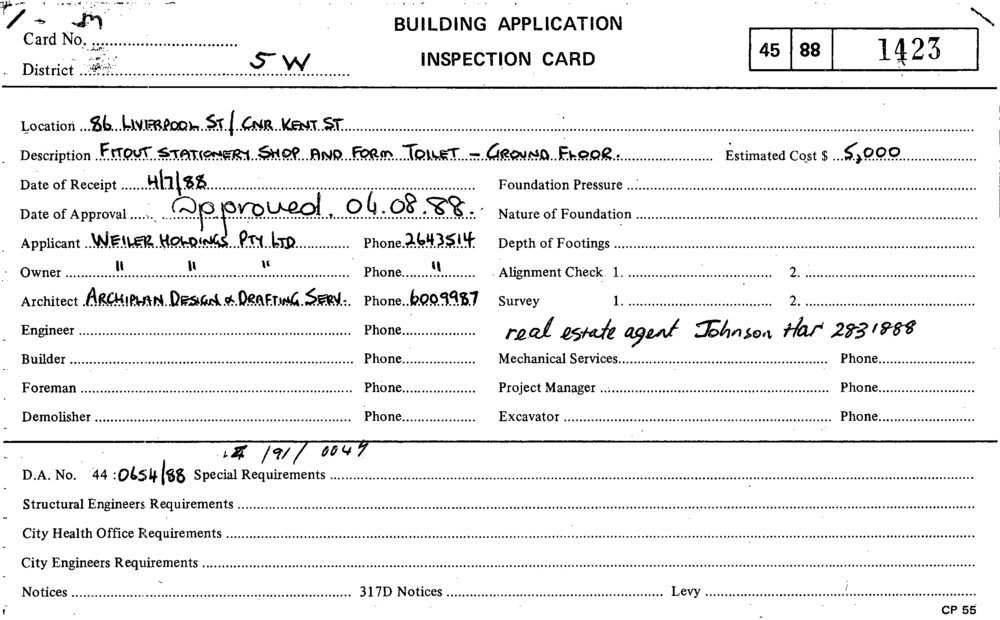 BUILDING APPLICATION
INSPECTION CARD
Card No.
District 5 W
45 88 1423
Location 86 LIVERPOOL ST / CNR KENT ST
Description FITOUT STATIONERY SHOP AND FORM TOILET - GROUND FLOOR. Estimated Cost $ 5,000
Date of Receipt 4/7/88 Foundation Pressure
Date of Approval Approved. 04.08.88. Nature of Foundation
Applicant WEILER HOLDINGS PTY LTD Phone 2643514 Depth of Footings
Owner " " " Phone " Alignment Check 1. 2.
Architect ARCHIPLAN DESIGN & DRAFTING SERV. Phone 6009987 Survey 1. 2.
Engineer Phone real estate agent Johnson Har 2831888
Builder Phone Mechanical Services Phone
Foreman Phone Project Manager Phone
Demolisher Phone Excavator Phone
/91/ 0047
D.A. No. 44 :0654/88 Special Requirements
Structural Engineers Requirements
City Health Office Requirements
City Engineers Requirements
Notices 317D Notices Levy
CP 55